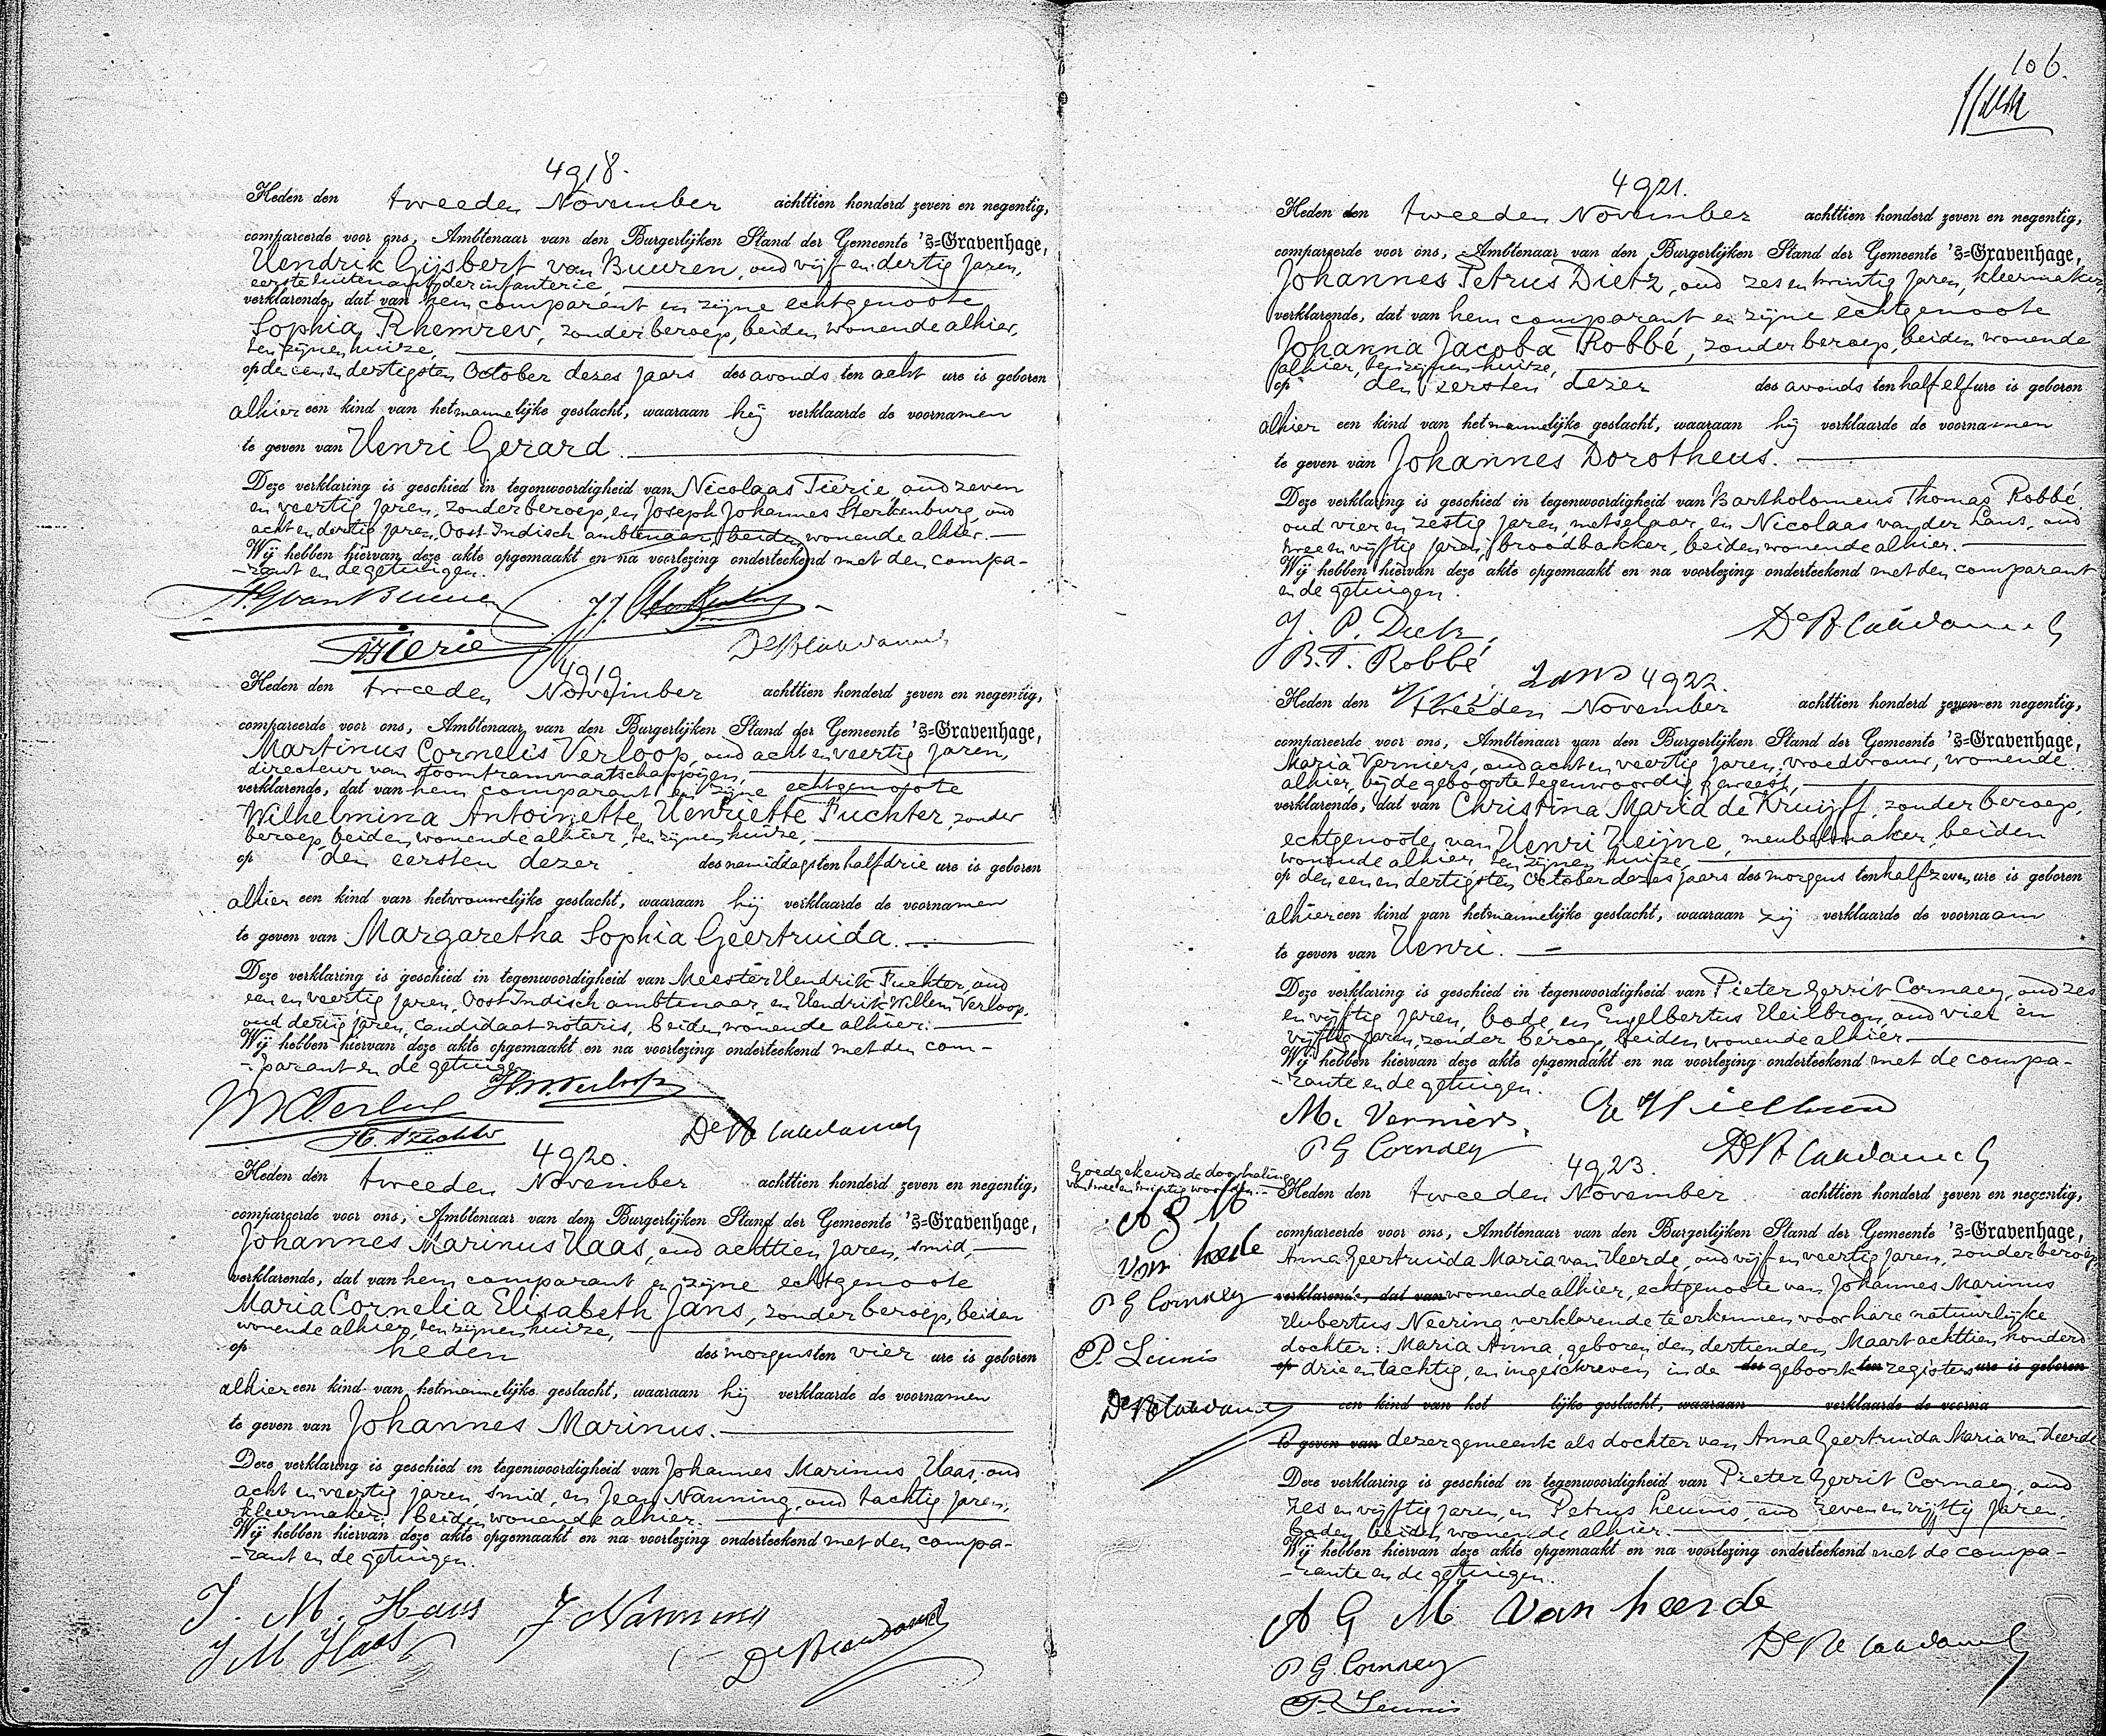 4918.
Heden den tweeden November achttien honderd zeven en negentig,
compareerde voor ons, Ambtenaar van den Burgerlijken Stand der Gemeente 's=Gravenhage,
Hendrik Gijsbert van Buuren, oud vijf en dertig jaren,
eerste luitenant der infanterie,
verklarende, dat van hem comparant en zijne echtgenoote
Sophia Rhemrev, zonder beroep, beiden wonende alhier,
ten zijnen huize,
op den een en dertigsten October dezes jaars des avonds ten acht ure is geboren
alhier een kind van het mannelijke geslacht, waaraan hij verklaarde de voornamen
te geven van Henri Gerard.
Deze verklaring is geschied in tegenwoordigheid van Nicolaas Tierie, oud zeven
en veertig jaren, zonder beroep, en Joseph Johannes Sterkenburg, oud
acht en dertig jaren, Oost-Indisch ambtenaar, beiden wonende alhier.
Wij hebben hiervan deze akte opgemaakt en na voorlezing onderteekend met den compa-
-rant en de getuigen.
H.G van Buuren
J.J. Sterkenburg
NTierie
4919.
Heden den tweeden November achttien honderd zeven en negentig,
compareerde voor ons, Ambtenaar van den Burgerlijken Stand der Gemeente 's=Gravenhage,
Martinus Cornelis Verloop, oud acht en veertig jaren,
directeur van stoomtrammaatschappijen,
verklarende, dat van hem comparant en zijne echtgenoote
Wilhelmina Antoinette Henriette Fuchter, zonder
beroep, beiden wonende alhier, ten zijnen huize,
op den eersten dezer des namiddags ten half drie ure is geboren
alhier een kind van het vrouwelijke geslacht, waaraan hij verklaarde de voornamen
te geven van Margaretha Sophia Geertruida.
Deze verklaring is geschied in tegenwoordigheid van Meester Hendrik Fuchter, oud
een en veertig jaren, Oost Indisch ambtenaar, en Hendrik Willem Verloop,
oud dertig jaren, candidaat-notaris, beiden wonende alhier.
Wij hebben hiervan deze akte opgemaakt en na voorlezing onderteekend met den com-
-parant en de getuigen.
H.W. Verloop
MCVerloop
H. Fuchter
4920.
Heden den tweeden November achttien honderd zeven en negentig,
compareerde voor ons, Ambtenaar van den Burgerlijken Stand der Gemeente 's=Gravenhage,
Johannes Marinus Haas, oud achttien jaren, smid,
verklarende, dat van hem comparant en zijne echtgenoote
Maria Cornelia Elisabeth Jans, zonder beroep, beiden
wonende alhier, ten zijnen huize,
op heden des morgens ten vier ure is geboren
alhier een kind van het mannelijke geslacht, waaraan hij verklaarde de voornamen
te geven van Johannes Marinus.
Deze verklaring is geschied in tegenwoordigheid van Johannes Marinus Haas, oud
acht en veertig jaren, smid, en Jean Nanning, oud tachtig jaren,
kleermaker, beiden wonende alhier.
Wij hebben hiervan deze akte opgemaakt en na voorlezing onderteekend met den compa-
-rant en de getuigen.
J. M. Haas J Nanning
J M Haas
106.
4921.
Heden den tweeden November achttien honderd zeven en negentig,
compareerde voor ons, Ambtenaar van den Burgerlijken Stand der Gemeente 's=Gravenhage,
Johannes Petrus Dietz, oud zes en twintig jaren, kleermaker,
verklarende, dat van hem comparant en zijne echtgenoote
Johanna Jacoba Robbé, zonder beroep, beiden wonende
alhier, ten zijnen huize,
op den eersten dezer des avonds ten half elf ure is geboren
alhier een kind van het mannelijke geslacht, waaraan hij verklaarde de voornamen
te geven van Johannes Dorotheus.
Deze verklaring is geschied in tegenwoordigheid van Bartholomeus Thomas Robbé,
oud vier en zestig jaren, metselaar, en Nicolaas van der Lans, oud
twee en vijftig jaren, broodbakker, beiden wonende alhier.
Wij hebben hiervan deze akte opgemaakt en na voorlezing onderteekend met den comparant
en de getuigen.
J. P. Dietz.
B.T. Robbé
Lans
4922.
Heden den tweeden November achttien honderd zeven en negentig,
compareerde voor ons, Ambtenaar van den Burgerlijken Stand der Gemeente 's=Gravenhage,
Maria Verniers, oud acht en veertig jaren, vroedvrouw, wonende
alhier, bij de geboorte tegenwoordig geweest,
verklarende, dat van Christina Maria de Kruijff, zonder beroep,
echtgenoote van Henri Heijne, meubelmaker, beiden
wonende alhier, ten zijnen huize,
op den een en dertigsten October dezes jaars des morgens ten half zeven ure is geboren
alhier een kind van het mannelijke geslacht, waaraan zij verklaarde de voornaam
te geven van Henri.
Deze verklaring is geschied in tegenwoordigheid van Pieter Gerrit Cornaey, oud zes
en vijftig jaren, bode, en Engelbertus Heilbron, oud vier en
vijftig jaren, zonder beroep, beiden wonende alhier
Wij hebben hiervan deze akte opgemaakt en na voorlezing onderteekend met de compa-
-rante en de getuigen.
M. Verniers.
P G Cornaey
4923.
Goedgekeurd de doorhaling
van twee en twintig woorden.
A G M
van heerde
P G Cornaey
P. Leunis
Heden den tweeden November achttien honderd zeven en negentig,
compareerde voor ons, Ambtenaar van den Burgerlijken Stand der Gemeente 's=Gravenhage,
Anna Geertruida Maria van Heerde, oud vijf en veertig jaren, zonder beroep,
verklarende, dat van wonende alhier, echtgenoote van Johannes Marinus
Hubertus Neering, verklarende te erkennen voor hare natuurlijke
dochter: Maria Anna, geboren den dertienden Maart achttien honderd
op drie en tachtig, en ingeschreven in de des geboorte ten registers ure is geboren
een kind van het lijke geslacht, waaraan verklaarde de voorna
te geven van dezer gemeente als dochter van Anna Geertruida Maria van Heerde
Deze verklaring is geschied in tegenwoordigheid van Pieter Gerrit Cornaey, oud
zes en vijftig jaren, en Petrus Leunis, oud zeven en vijftig jaren,
boden, beiden wonende alhier.
Wij hebben hiervan deze akte opgemaakt en na voorlezing onderteekend met de compa-
-rante en de getuigen.
A G M van heerde
P G Cornaey
P. Leunis